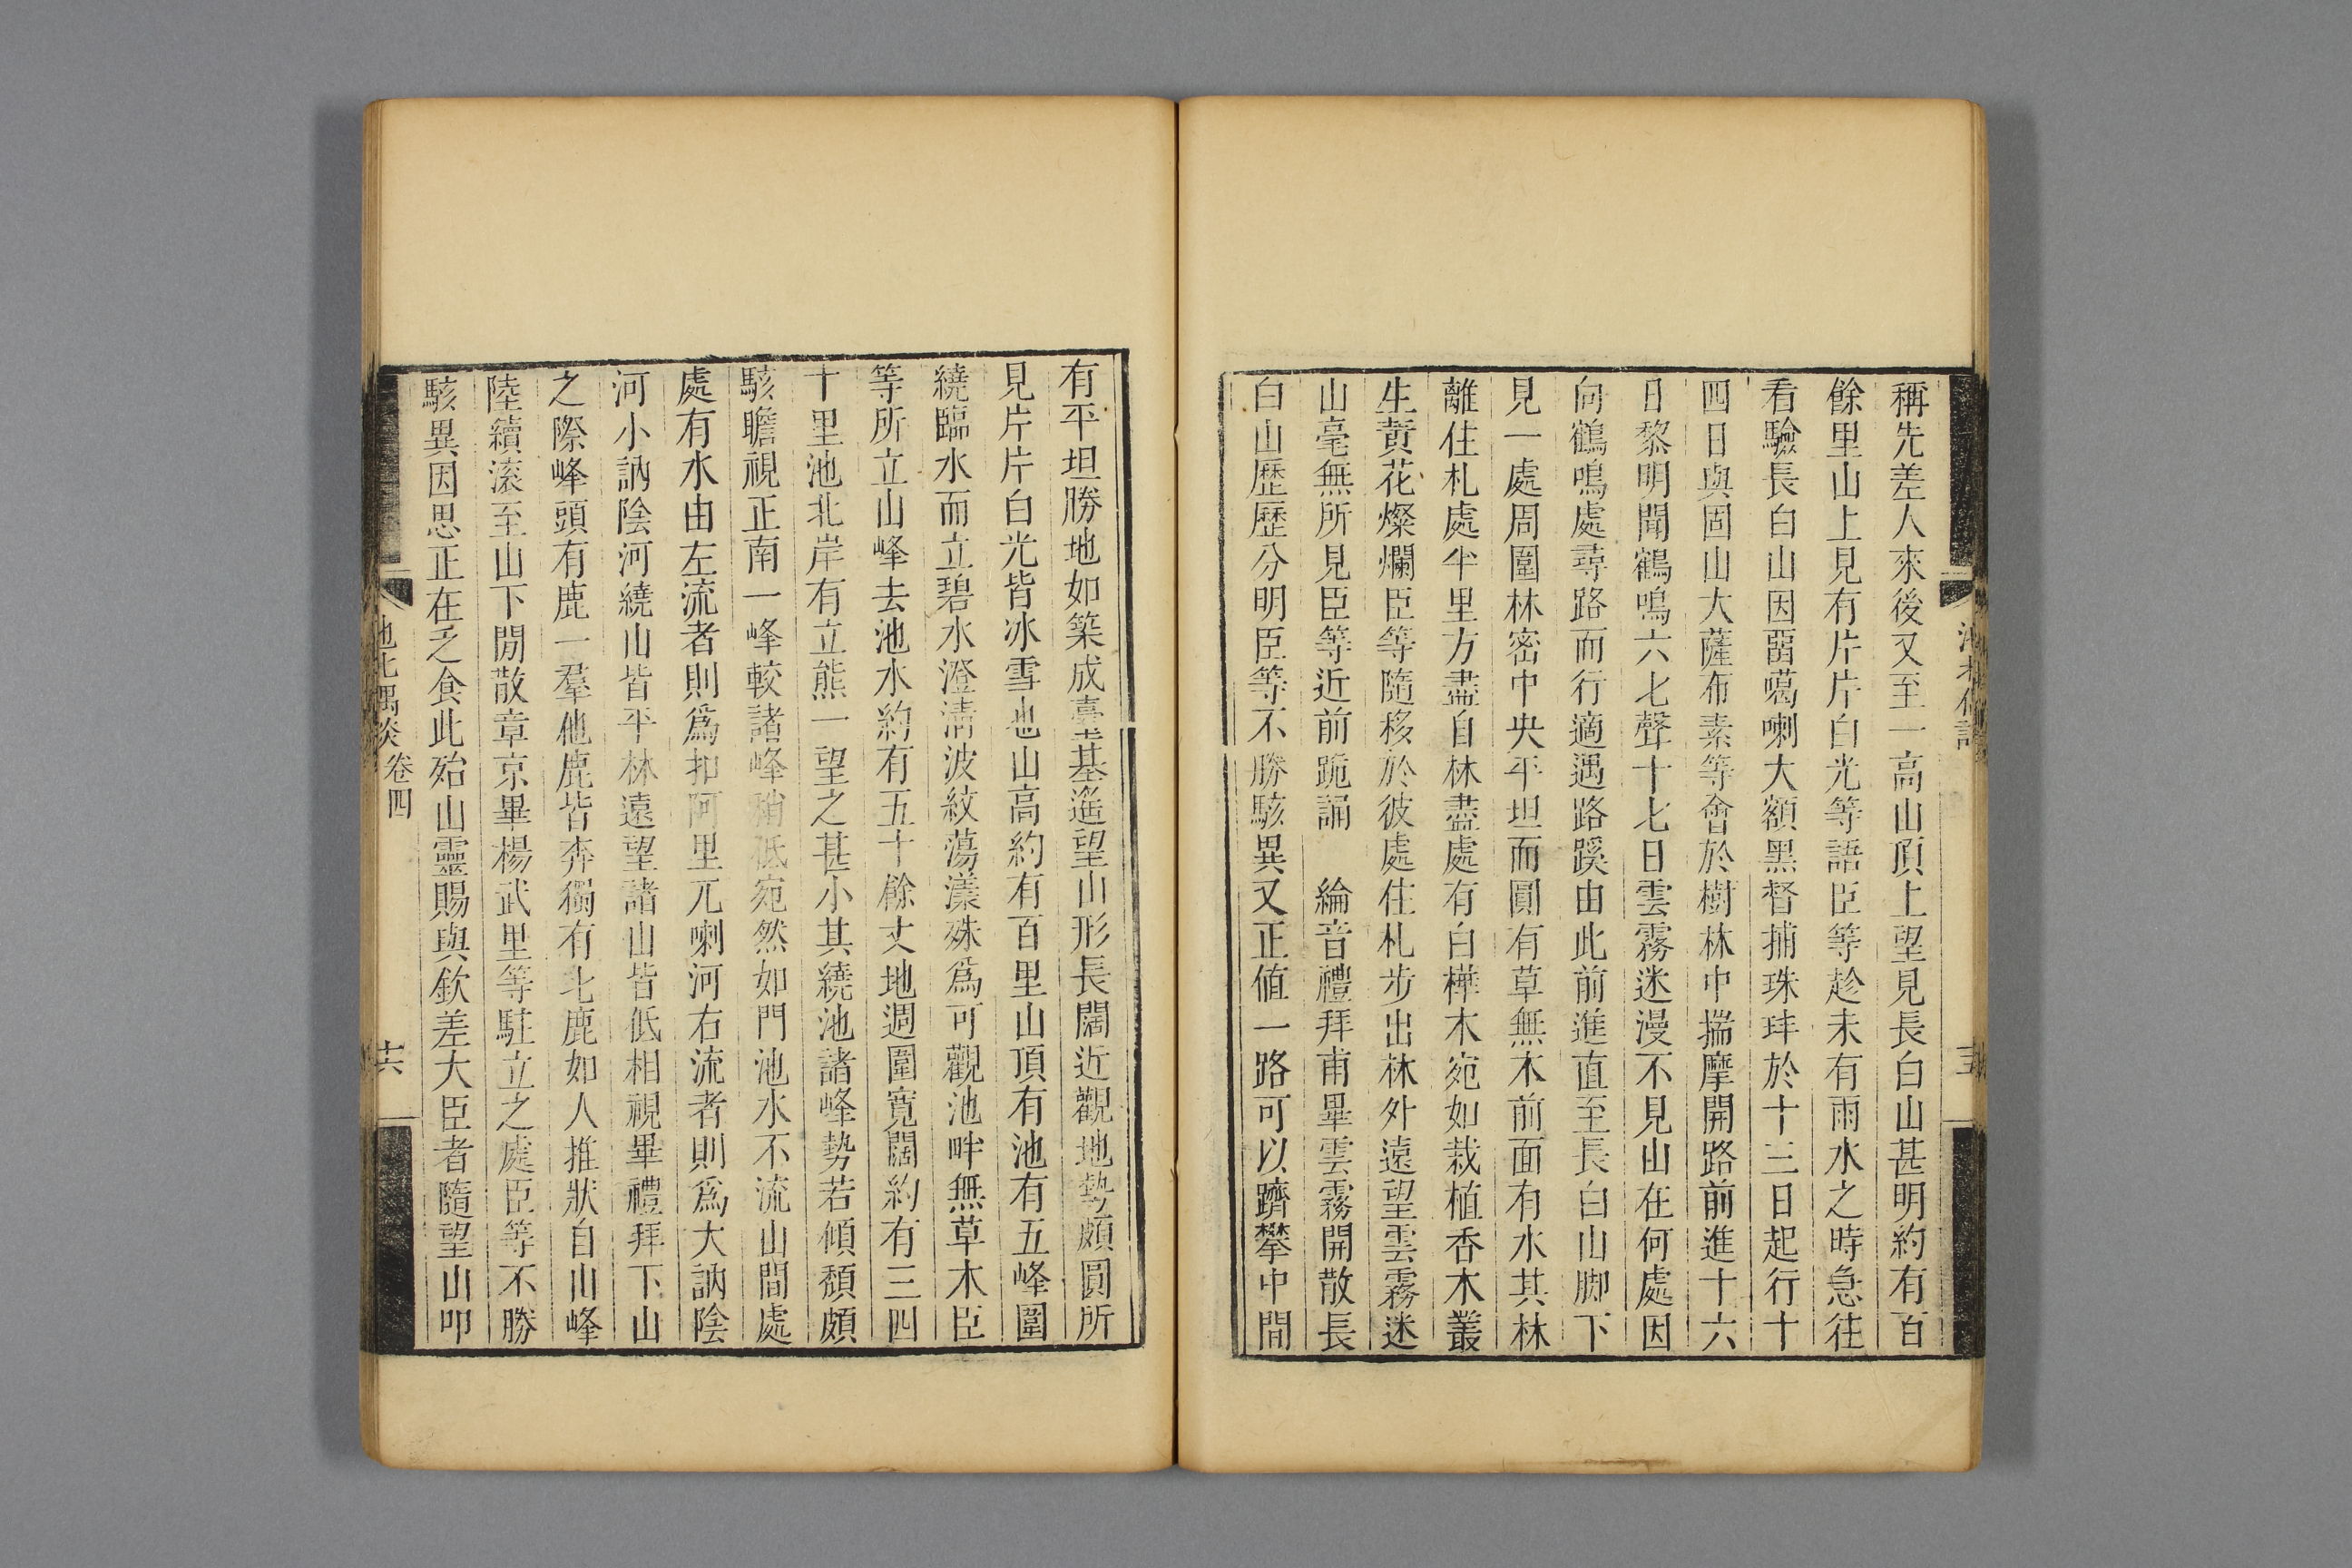 稱先差人來後又至一高山頂上望見長白山甚明約有百
餘里山上見有片片白光等語臣等趁未有雨水之時急往
看驗長白山因畱噶喇大額黑督捕珠蚌於十三日起行十
四日與固山大薩布素等會於樹林中揣摩開路前進十六
日黎明聞鶴鳴六七聲十七日雲霧迷漫不見山在何處因
向鶴鳴處尋路而行適遇路蹊由此前進直至長白山脚下
見一處周圍林密中央平坦而圓有草無木前面有水其林
離住札處半里方盡自林盡處有白樺木宛如栽植香木叢
生黃花燦爛臣等隨移於彼處住札步出林外遠望雲霧迷
山毫無所見臣等近前跪誦 綸音禮拜甫畢雲霧開散長
白山歷歷分明臣等不勝駭異又正値一路可以躋攀中間
有平坦勝地如築成臺基遙望山形長闊近觀地勢頗圓所
見片片白光皆冰雪也山高約有百里山頂有池有五峰圍
繞臨水而立碧水澄淸波紋蕩漾殊爲可觀池畔無草木臣
等所立山峰去池水約有五十餘丈地週圍寬闊約有三四
十里池北岸有立熊一望之甚小其繞池諸峰勢若傾頹頗
駭瞻視正南一峰較諸峰稍低宛然如門池水不流山間處
處有水由左流者則爲扣阿里兀喇河右流者則爲大訥陰
河小訥陰河繞山皆平林遠望諸山皆低相視畢禮拜下山
之際峰頭有鹿一羣他鹿皆奔獨有七鹿如人推狀自山峰
陸續滚至山下閒散章京畢楊武里等駐立之處臣等不勝
駭異因思正在乏食此殆山靈賜與欽差大臣者隨望山叩
池北偶談 卷四
十六